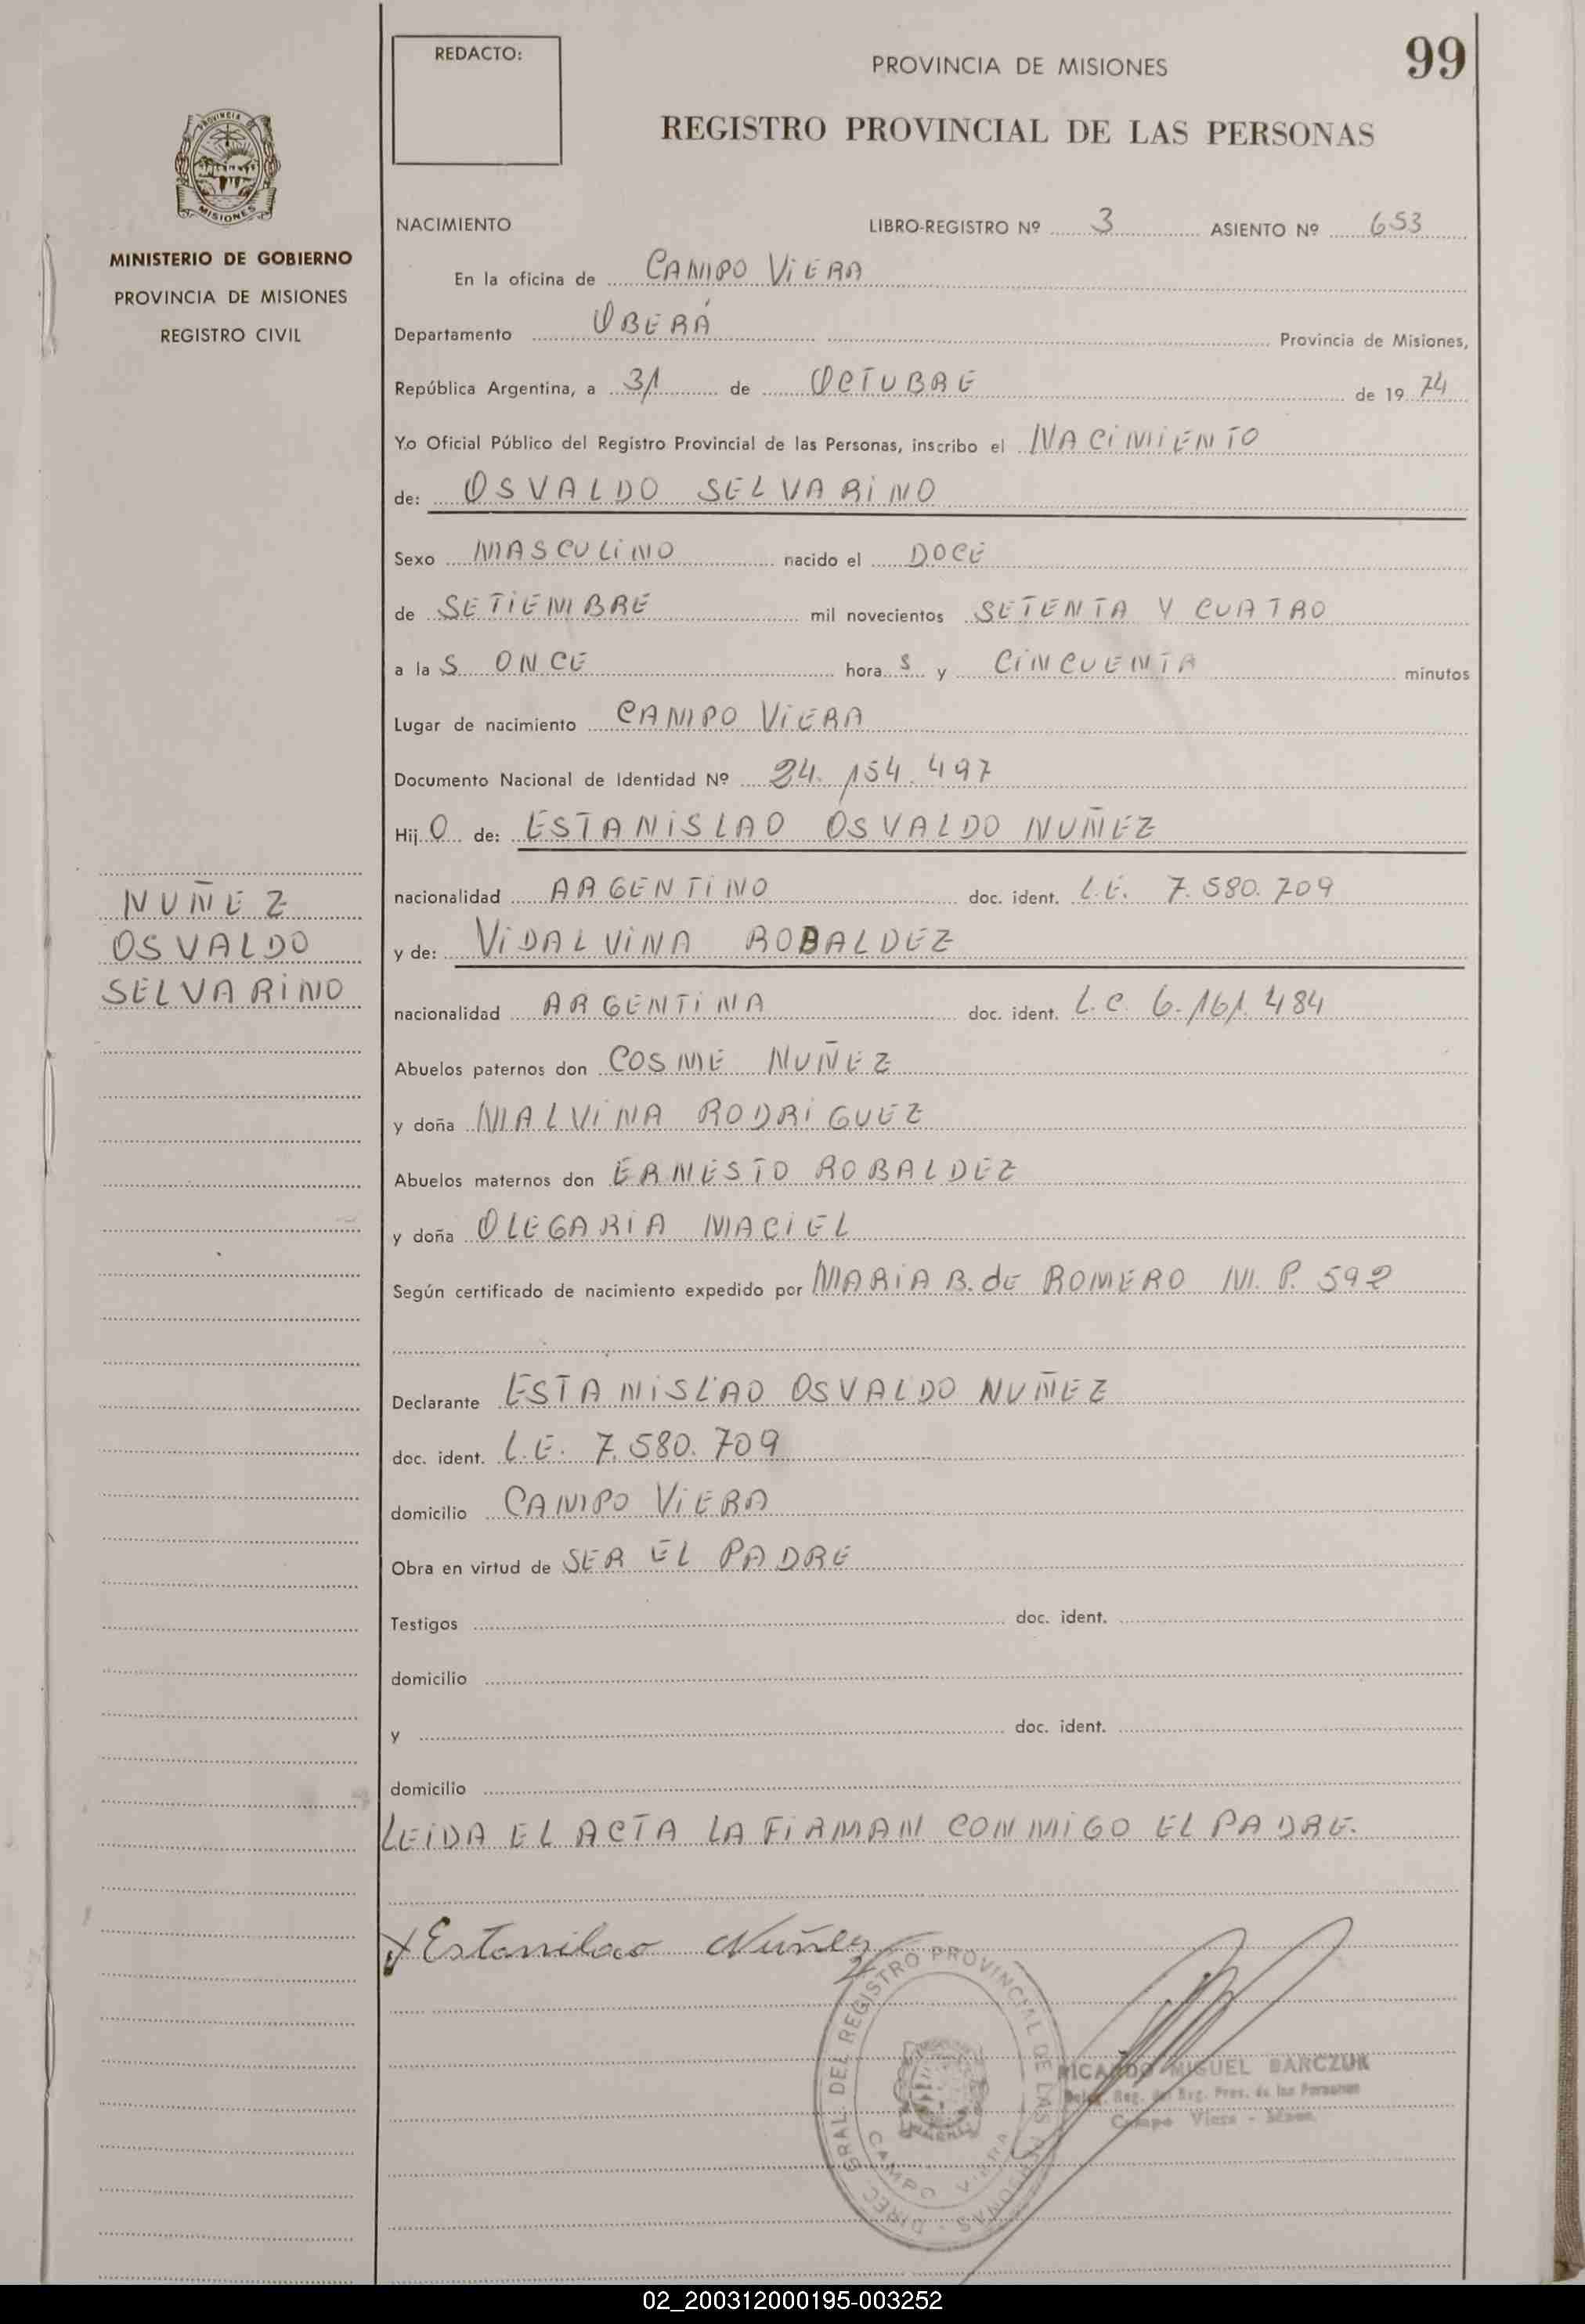 REDACTO:
PROVINCIA DE MISIONES
99
REGISTRO PROVINCIAL DE LAS PERSONAS
PROVINCIA DE
MISIONES
MINISTERIO DE GOBIERNO
PROVINCIA DE MISIONES
REGISTRO CIVIL
NACIMIENTO LIBRO-REGISTRO Nº 3 ASIENTO Nº 653
En la oficina de CAMPO ViERA
Departamento OBERÁ Provincia de Misiones,
República Argentina, a 31 de OCTUBRE de 19 74
Yo Oficial Público del Registro Provincial de las Personas, inscribo el NACiMiENTO
de: OSVALDO SELVARiNO
Sexo MASCULiNO nacido el DOCE
de SETiEMBRE mil novecientos SETENTA Y CUATRO
a la S ONCE hora S y CiNCUENTA minutos
Lugar de nacimiento CAMPO ViERA
Documento Nacional de Identidad Nº 24.154.497
Hij O de: ESTANiSLAO OSVALDO NUÑEZ
nacionalidad ARGENTiNO doc. ident. L.E. 7.580.709
y de: ViDALViNA ROBALDEZ
nacionalidad ARGENTiNA doc. ident. L.C. 6.161.484
NUÑEZ
OSVALDO
SELVARiNO
Abuelos paternos don COSME NUÑEZ
y doña MALViNA RODRiGUEZ
Abuelos maternos don ERNESTO ROBALDEZ
y doña OLEGARiA MACiEL
Según certificado de nacimiento expedido por MARiA B. dE ROMERO M.P. 592
Declarante ESTANiSLAO OSVALDO NUÑEZ
doc. ident. L.E. 7.580.709
domicilio CAMPO ViERA
Obra en virtud de SER EL PADRE
Testigos doc. ident.
domicilio
y doc. ident.
domicilio
LEiDA EL ACTA LA FiRMAN CONMiGO EL PADRE.
Estanilao Nuñez
DIREC. GRAL. DEL REGISTRO PROVINCIAL DE LAS PERSONAS
CAMPO VIERA
RICARDO MIGUEL BARCZUK
Reg. del Reg. Prov. de las Personas
Campo Viera - Mnes.
02_200312000195-003252